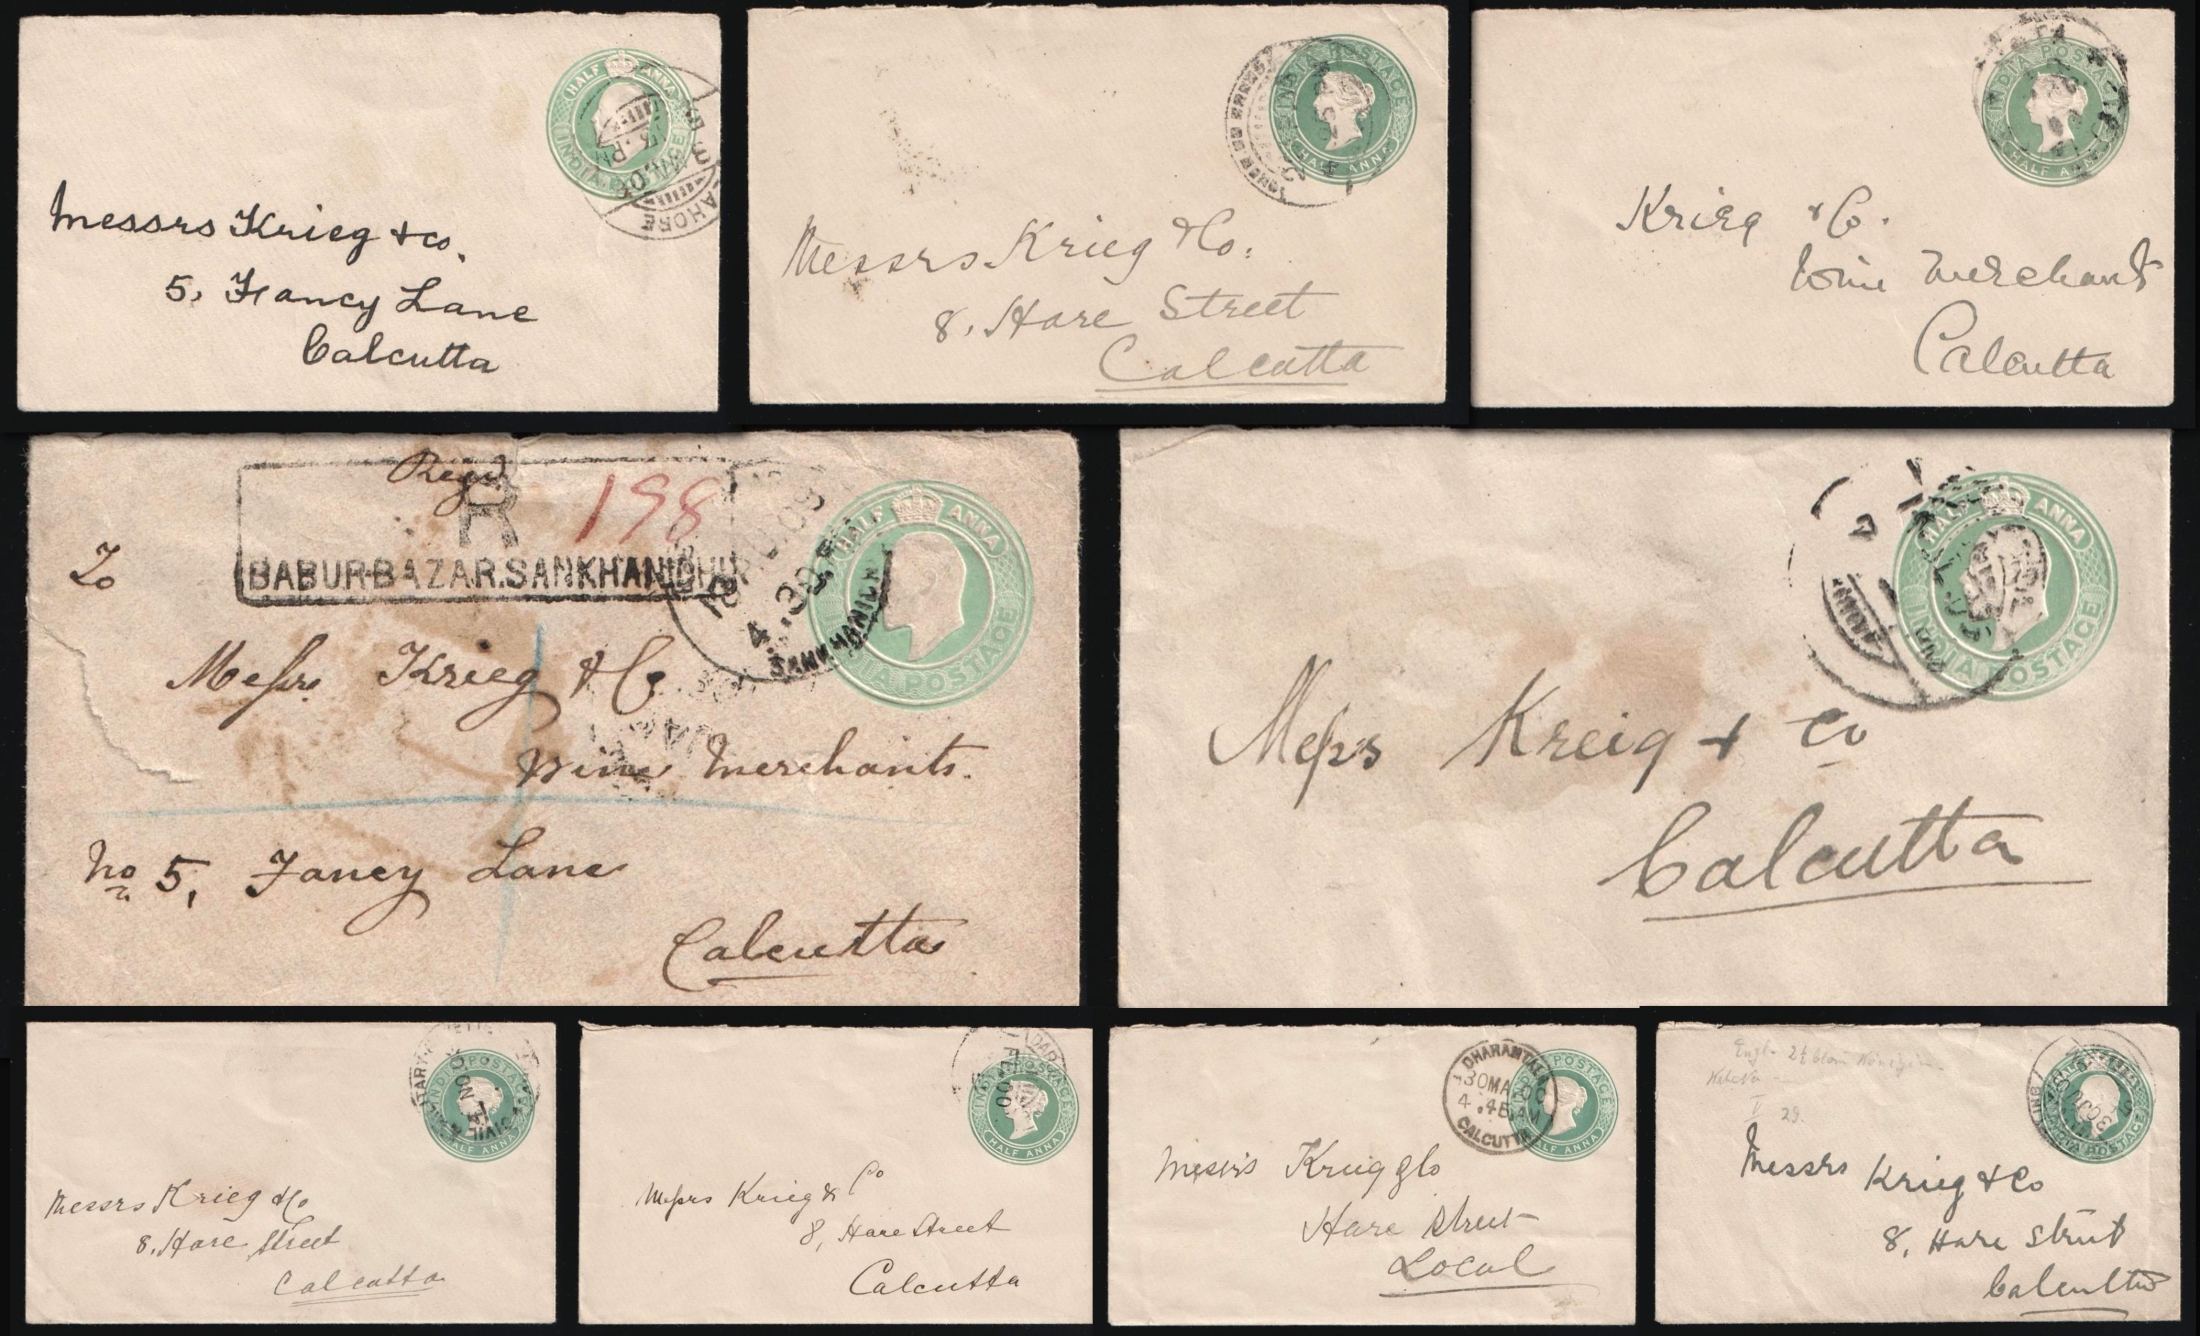 HALF ANNA
INDIA POSTAGE
LAHORE
Messrs Krieg & Co.
5, Fancy Lane
Calcutta
INDIA POSTAGE
HALF ANNA
Messrs Krieg & Co.
8, Hare Street
Calcutta
INDIA POSTAGE
HALF ANNA
Krieg & Co.
Wine Merchants
Calcutta
Regd
R 198
BABUR-BAZAR.SANKHANIDHI
4.30
SANKHANIDH
HALF ANNA
INDIA POSTAGE
To
Messrs Krieg & Co
Wine Merchants.
No 5, Fancy Lane
Calcutta
HALF ANNA
INDIA POSTAGE
Messrs Kreig & Co
Calcutta
INDIA POSTAGE
HALF ANNA
Messrs Krieg & Co
8, Hare Street
Calcutta
INDIA POSTAGE
HALF ANNA
Messrs Krieg & Co
8, Hare Street
Calcutta
DHARAMTALA
30 MA 00
4.45 AM
CALCUTTA
INDIA POSTAGE
HALF ANNA
Messrs Krieg & Co
Hare Street
Local
HALF ANNA
INDIA POSTAGE
29.
Messrs Krieg & Co
8, Hare Street
Calcutta